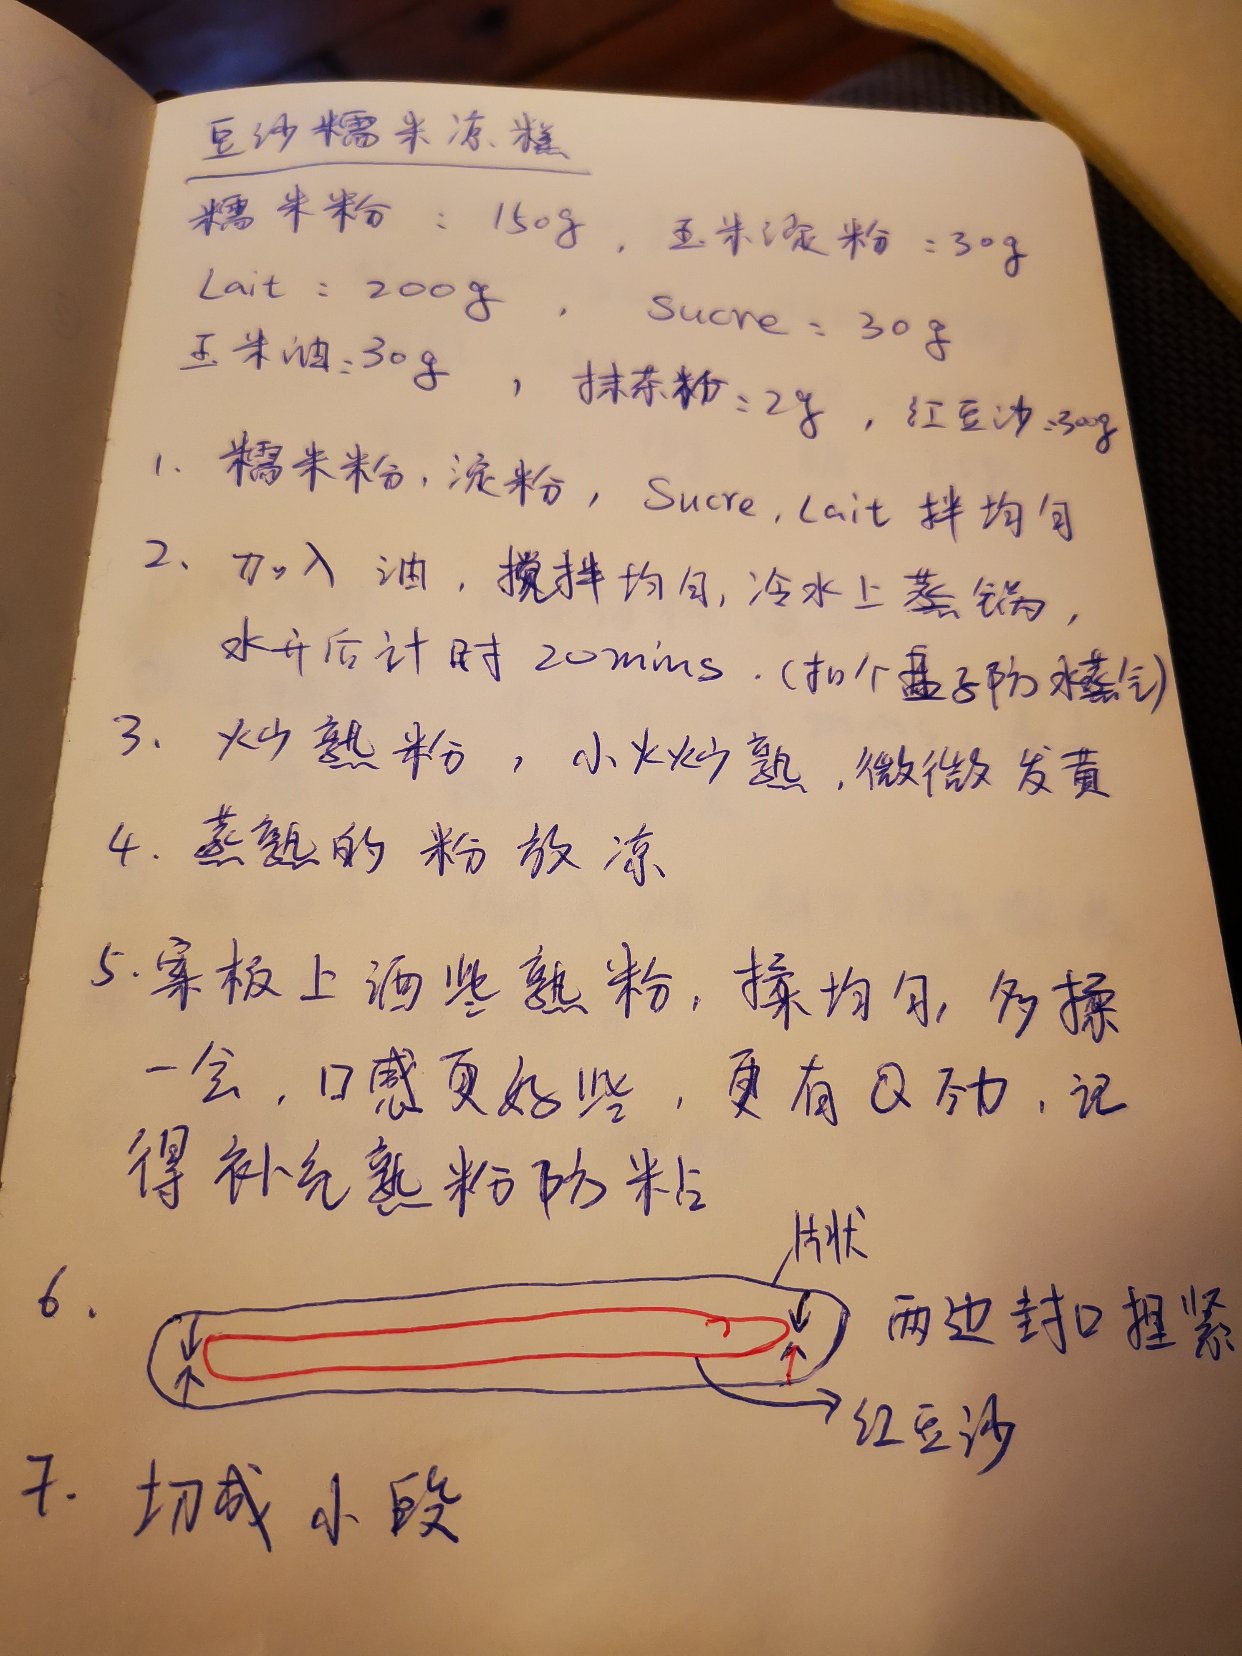 豆沙糯米凉糕
糯米粉：150g，玉米淀粉：30g
Lait：200g，Sucre：30g
玉米油：30g，抹茶粉：2g，红豆沙：300g
1. 糯米粉，淀粉，Sucre，Lait 拌均匀
2、加入油，搅拌均匀，冷水上蒸锅，
水开后计时20mins.（扣个盘子防水蒸气）
3. 炒熟粉，小火炒熟，微微发黄
4. 蒸熟的粉放凉
5. 案板上洒些熟粉，揉均匀，多揉
一会，口感更好些，更有Q劲，记
得补充熟粉防粘
6. 片状
两边封口捏紧
红豆沙
7. 切成小段